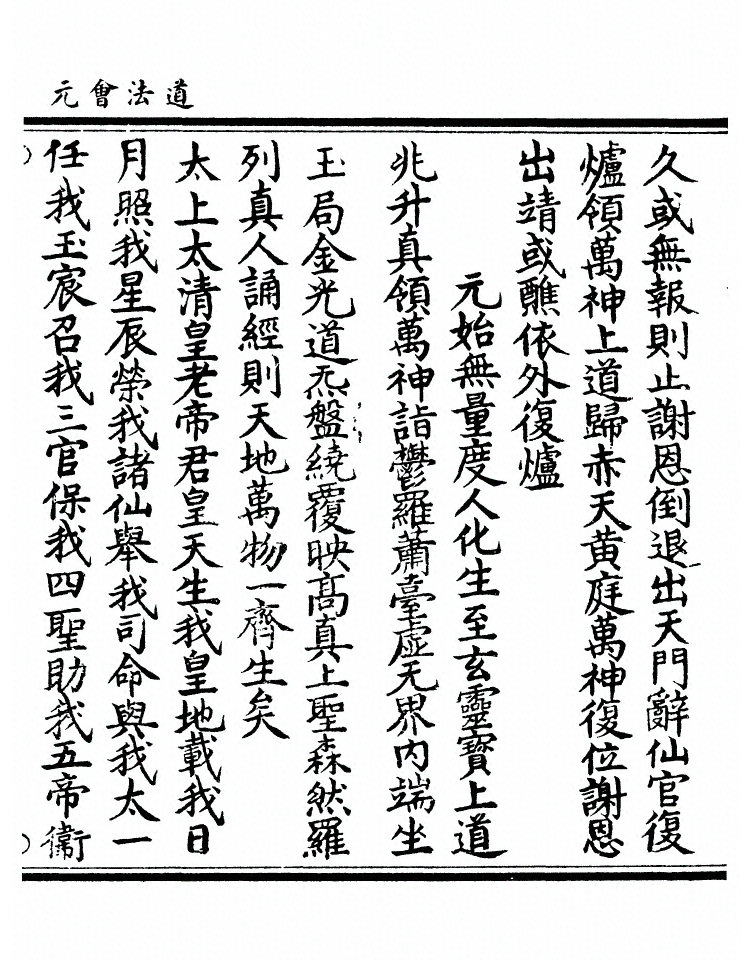 道法會元
久或無報則止謝恩倒退出天門辭仙官復
爐領萬神上道歸赤天黄庭萬神復位謝恩
出靖或醮依外復爐
元始無量度人化生至玄靈寶上道
兆升真領萬神詣鬱羅蕭臺虛无界内端坐
玉局金光道炁盤繞覆映髙真上聖森然羅
列真人誦經則天地萬物一齊生矣
太上太清皇老帝君皇天生我皇地載我日
月照我星辰榮我諸仙舉我司命與我太一
任我玉宸召我三官保我四聖助我五帝衞